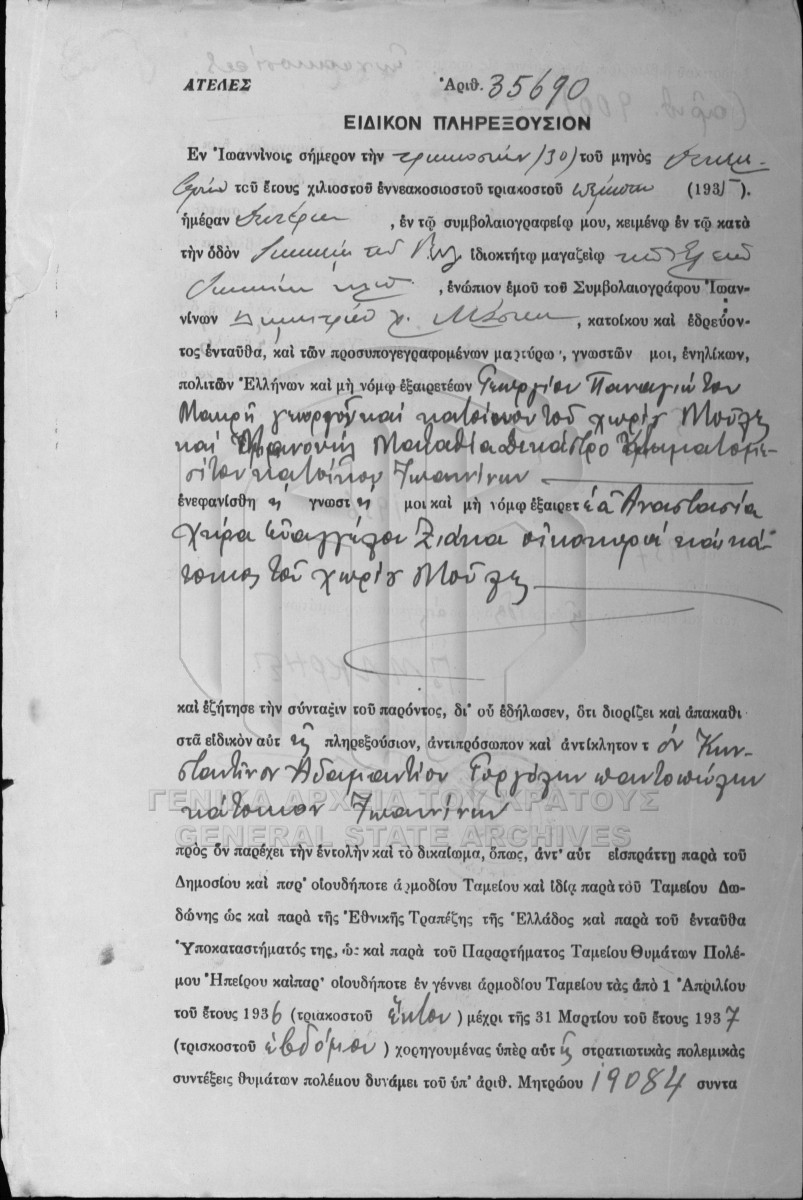 ΑΤΕΛΕΣ Ἀριθ. 35690
ΕΙΔΙΚΟΝ ΠΛΗΡΕΞΟΥΣΙΟΝ
Εν Ἰωαννίνοις σήμερον τὴν τριακοστὴν (30) τοῦ μηνὸς Δεκεμ-
βρίου τοῦ ἔτους χιλιοστοῦ ἐννεακοσιοστοῦ τριακοστοῦ πέμπτου (1935).
ἡμέραν Δευτέραν , ἐν τῷ συμβολαιογραφείῳ μου, κειμένῳ ἐν τῷ κατὰ
τὴν ὁδὸν ἰδιοκτήτῳ μαγαζείῳ
, ἐνώπιον ἐμοῦ τοῦ Συμβολαιογράφου Ἰωαν-
νίνων Δημητρίου , κατοίκου καὶ ἑδρεύον-
τος ἐνταῦθα, καὶ τῶν προσυπογεγραφομένων μαρτύρων, γνωστῶν μοι, ἐνηλίκων,
πολιτῶν Ἑλλήνων καὶ μὴ νόμῳ ἐξαιρετέων Γεωργίου Παναγιώτου
Μακρῆ γεωργοῦ καὶ κατοίκου τοῦ χωρίου
καὶ Ματαθία
κατοίκου Ἰωαννίνων
ἐνεφανίσθη ἡ γνωστὴ μοι καὶ μὴ νόμῳ ἐξαιρετέα Ἀναστασία
χήρα Εὐαγγέλου Ζιάκα οἰκοκυρὰ καὶ κά-
τοικος τοῦ χωρίου
καὶ ἐζήτησε τὴν σύνταξιν τοῦ παρόντος, δι' οὗ ἐδήλωσεν, ὅτι διορίζει καὶ ἀπακαθι
στᾶ εἰδικὸν αὐτῆς πληρεξούσιον, ἀντιπρόσωπον καὶ ἀντίκλητον τὸν Κων-
σταντῖνον Ἀδαμαντίου Γοργόλην παντοπώλην
κάτοικον Ἰωαννίνων
ΓΕΝΙΚΑ ΑΡΧΕΙΑ ΤΟΥ ΚΡΑΤΟΥΣ
GENERAL STATE ARCHIVES
πρὸς ὃν παρέχει τὴν ἐντολὴν καὶ τὸ δικαίωμα, ὅπως, ἀντ' αὐτ εἰσπράττῃ παρὰ τοῦ
Δημοσίου καὶ παρ' οἱουδήποτε ἁρμοδίου Ταμείου καὶ ἰδίᾳ παρὰ τοῦ Ταμείου Δω-
δώνης ὡς καὶ παρὰ τῆς Ἐθνικῆς Τραπέζης τῆς Ἑλλάδος καὶ παρὰ τοῦ ἐνταῦθα
Ὑποκαταστήματός της, ὡς καὶ παρὰ τοῦ Παραρτήματος Ταμείου Θυμάτων Πολέ-
μου Ἠπείρου καὶ παρ' οἱουδήποτε ἐν γέννει ἁρμοδίου Ταμείου τὰς ἀπὸ 1 Ἀπριλίου
τοῦ ἔτους 1936 (τριακοστοῦ ἕκτου ) μέχρι τῆς 31 Μαρτίου τοῦ ἔτους 1937
(τρισκοστοῦ ἑβδόμου ) χορηγουμένας ὑπὲρ αὐτῆς στρατιωτικὰς πολεμικὰς
συντέξεις θυμάτων πολέμου δυνάμει τοῦ ὑπ' ἀριθ. Μητρώου 19084 συντα